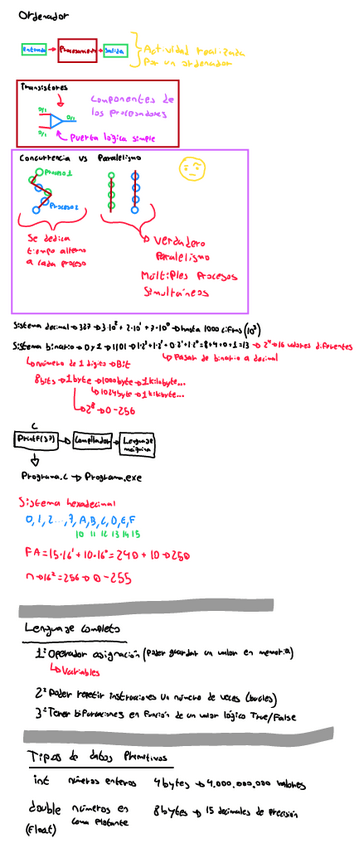 Ordenador
Entrada → Procesamiento → Salida
Actividad realizada
Por un ordenador
Transistores
0/1
0/1
0/1
Componentes de
los procesadores
Puerta lógica simple
Concurrencia vs Paralelismo
Proceso 1
Proceso 2
Se dedica
tiempo alterno
a cada proceso
Verdadero
Paralelismo
Múltiples Procesos
Simultáneos
Sistema decimal → 327 → 3·10² + 2·10¹ + 7·10⁰ → hasta 1000 cifras (10³)
Sistema binario → 0 y 1 → 1101 → 1·2³+1·2²+0·2¹+1·2⁰=8+4+0+1=13 → 2⁴ → 16 valores diferentes
↳ número de 1 dígito → Bit
↳ Pasar de binario a decimal
8bits → 1byte → 1000byte → 1kilobyte...
↳ 1024byte → 1kibibyte...
↳ 2⁸ → 0-256
C
Printf(3?) → Compilador → Lenguaje
máquina
Programa.c → Programa.exe
Sistema hexadecimal
0,1,2...,9,A,B,C,D,E,F
10 11 12 13 14 15
FA=15·16¹+10·16⁰=240+10→250
n→16²=256→0-255
Lenguaje completo
1º Operador asignación (Poder guardar un valor en memoria)
↳ Variables
2º Poder repetir instrucciones un número de veces (bucles)
3º Tener bifurcaciones en función de un valor lógico True/False
Tipos de datos Primitivos
int números enteros 4bytes → 4.000.000.000 valores
double números en 8bytes → 15 decimales de precisión
(Float) coma flotante